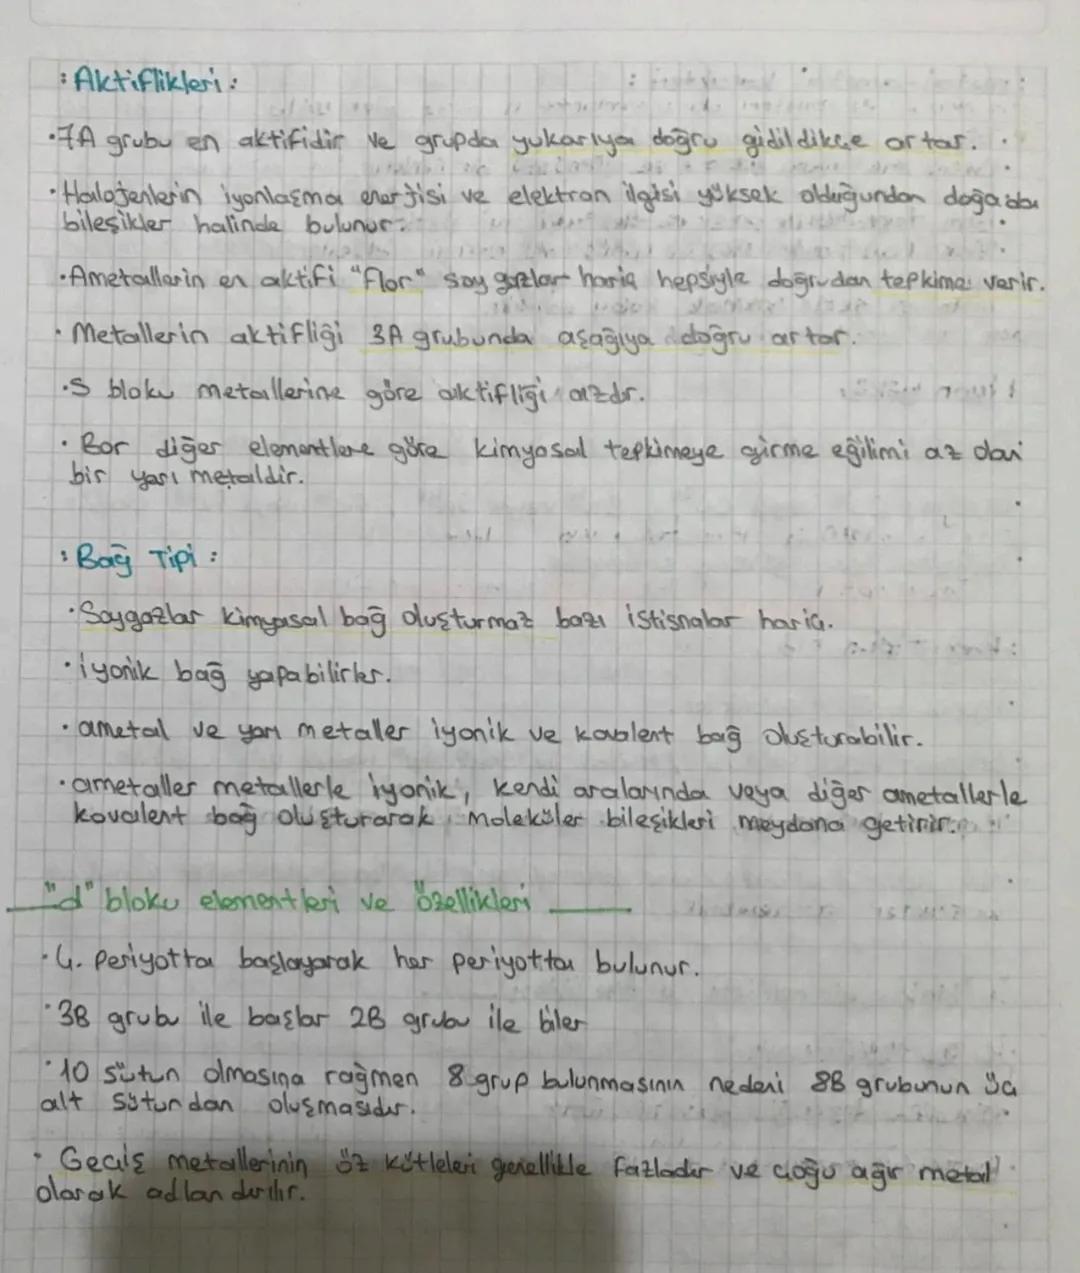 : Aktiflikleri :
·7A grubu en aktifidir ve grupda yukarıya doğru gidildikçe artar.
·Halojenlerin iyonlaşma enerjisi ve elektron ilgisi yüksek olduğundan doğada
bileşikler halinde bulunur.
·Ametallerin en aktifi "flor" soy gazlar hariç hepsiyle doğrudan tepkime verir.
· Metallerin aktifliği 3A grubunda aşağıya doğru artar.
·S bloku metallerine göre aktifliği azdır.
· Bor diğer elementlere göre kimyasal tepkimeye girme eğilimi az olan
bir yarı metaldir.
: Bağ Tipi :
·Soygazlar kimyasal bağ oluşturmaz bazı istisnalar hariç.
·iyonik bağ yapabilirler.
·ametal ve yarı metaller iyonik ve kovalent bağ oluşturabilir.
·ametaller metallerle iyonik, kendi aralarında veya diğer ametallerle
kovalent bağ oluşturarak moleküler bileşikleri meydana getirir.
"d" bloku elementleri ve özellikleri
·4. periyotta başlayarak her periyotta bulunur.
·3B grubu ile başlar 2B grubu ile biter
·10 sütun olmasına rağmen 8 grup bulunmasının nedeni 8B grubunun üç
alt sütundan oluşmasıdır.
· Geçiş metallerinin öz kütleleri genellikle fazladır ve çoğu ağır metal
olarak adlandırılır.